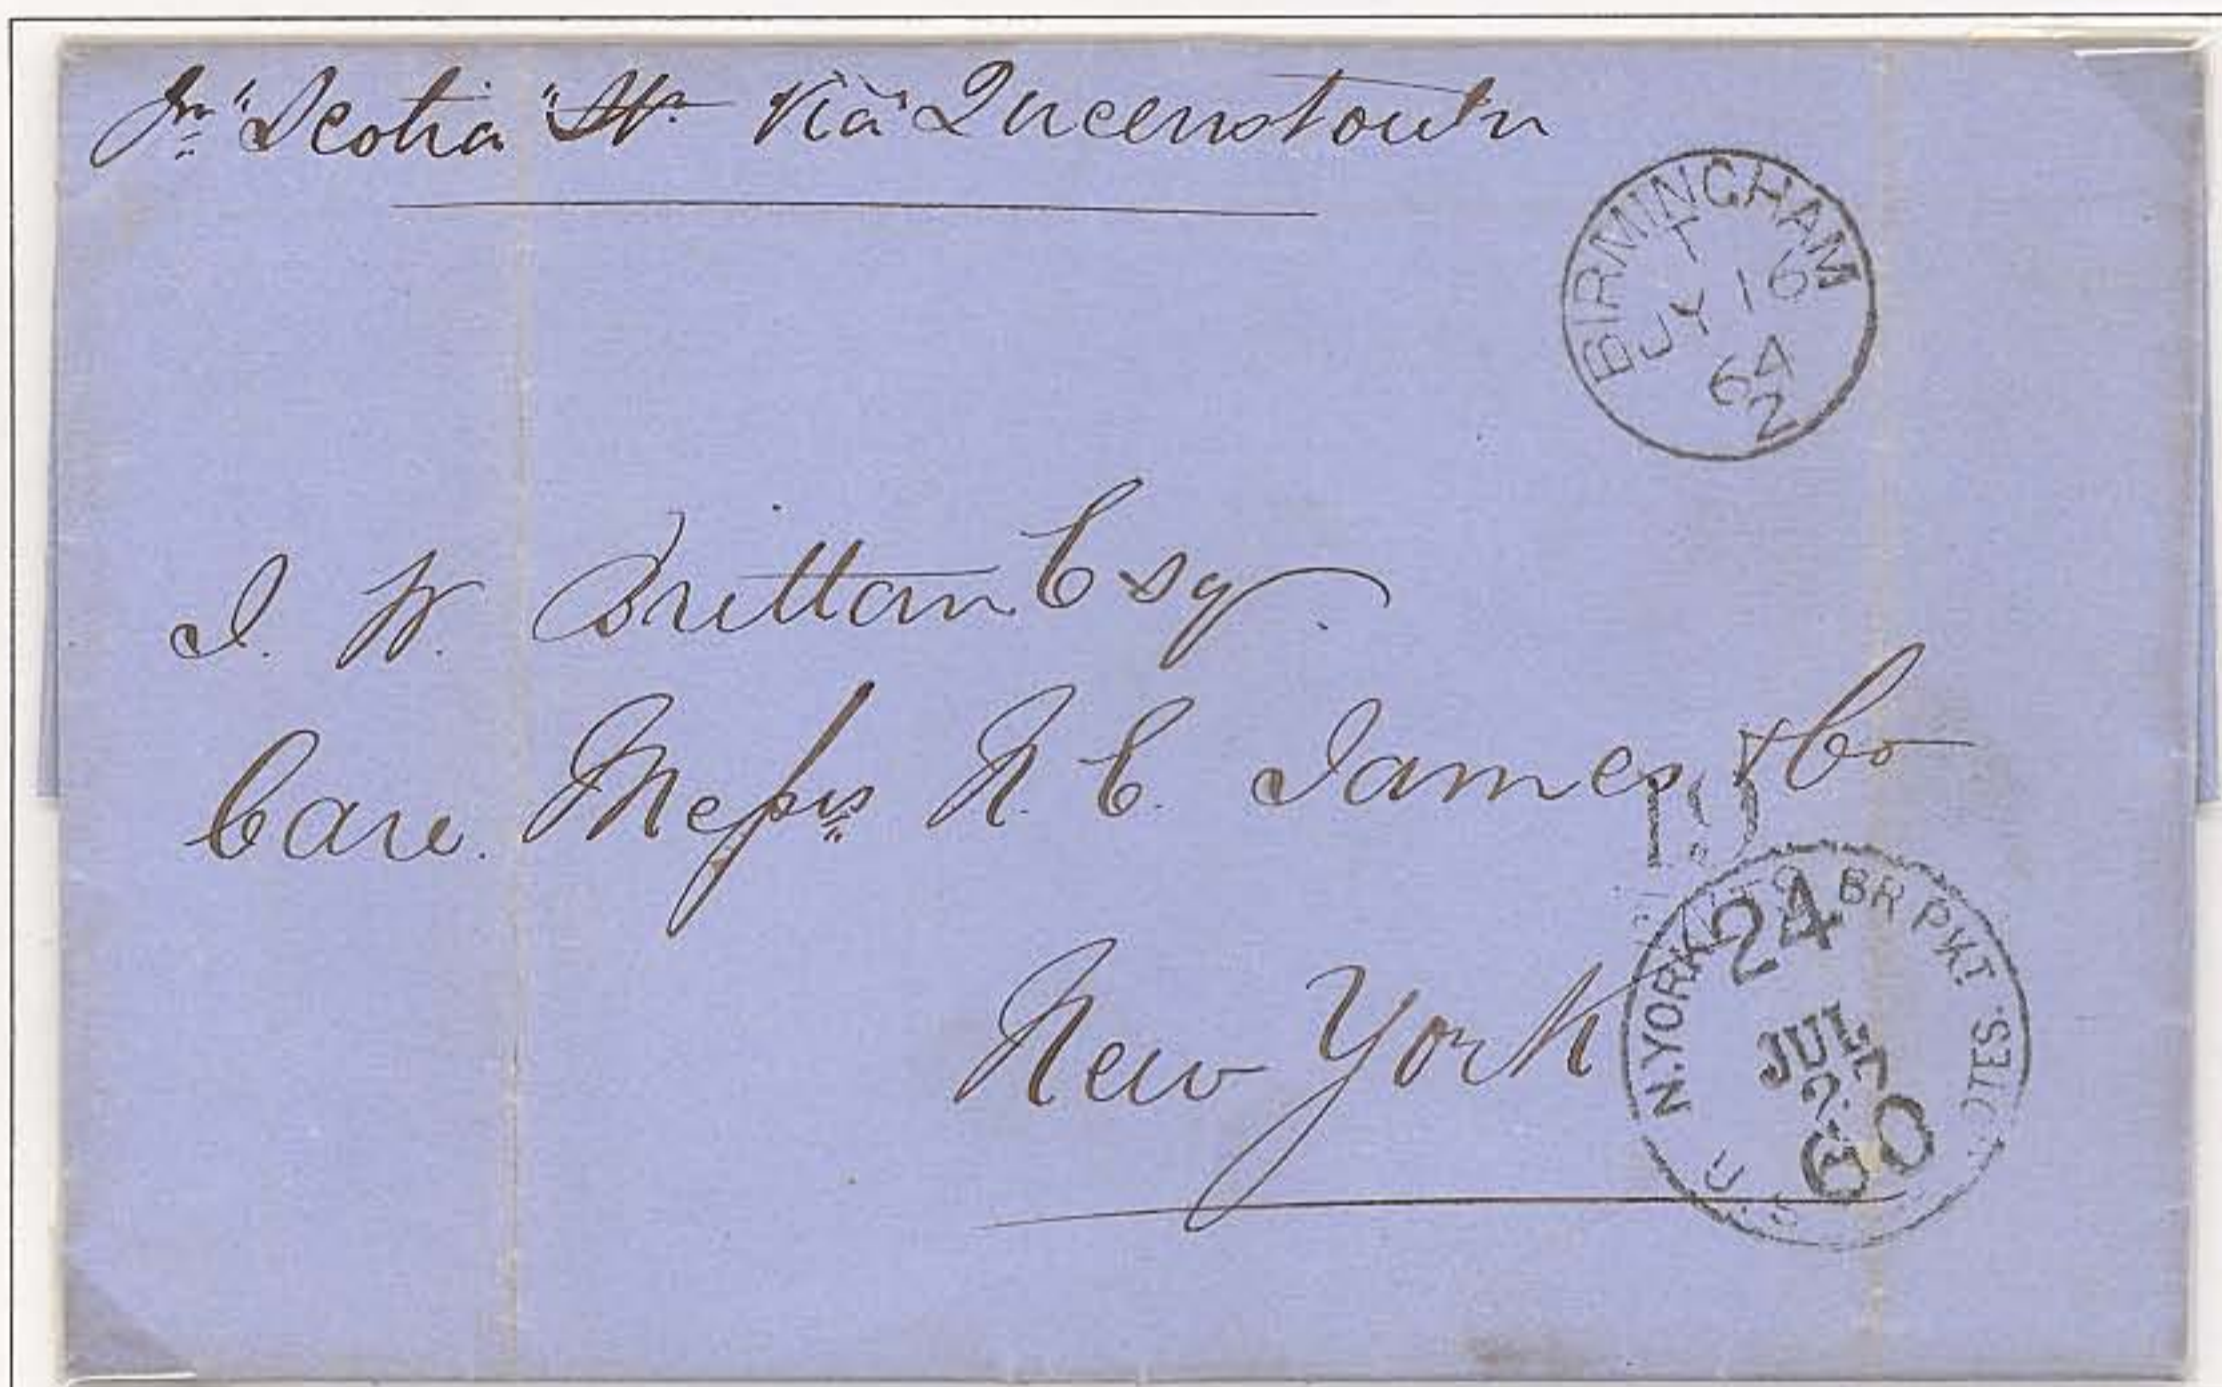 Pr "Scotia" Str Via Queenstown
BIRMINGHAM
T
JY 16
64
2
J. W. Brittan Esq.
Care Messrs N. C. James & Co
19
New York
N. YORK BR PKT.
24
JUL
60
U.S. NOTES